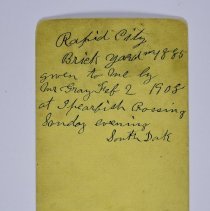 Rapid City
Brick yard in 1885
given to me by
Mr Gray Feb 2 1908
at Spearfish Crossing
Sonday evening
South Dak